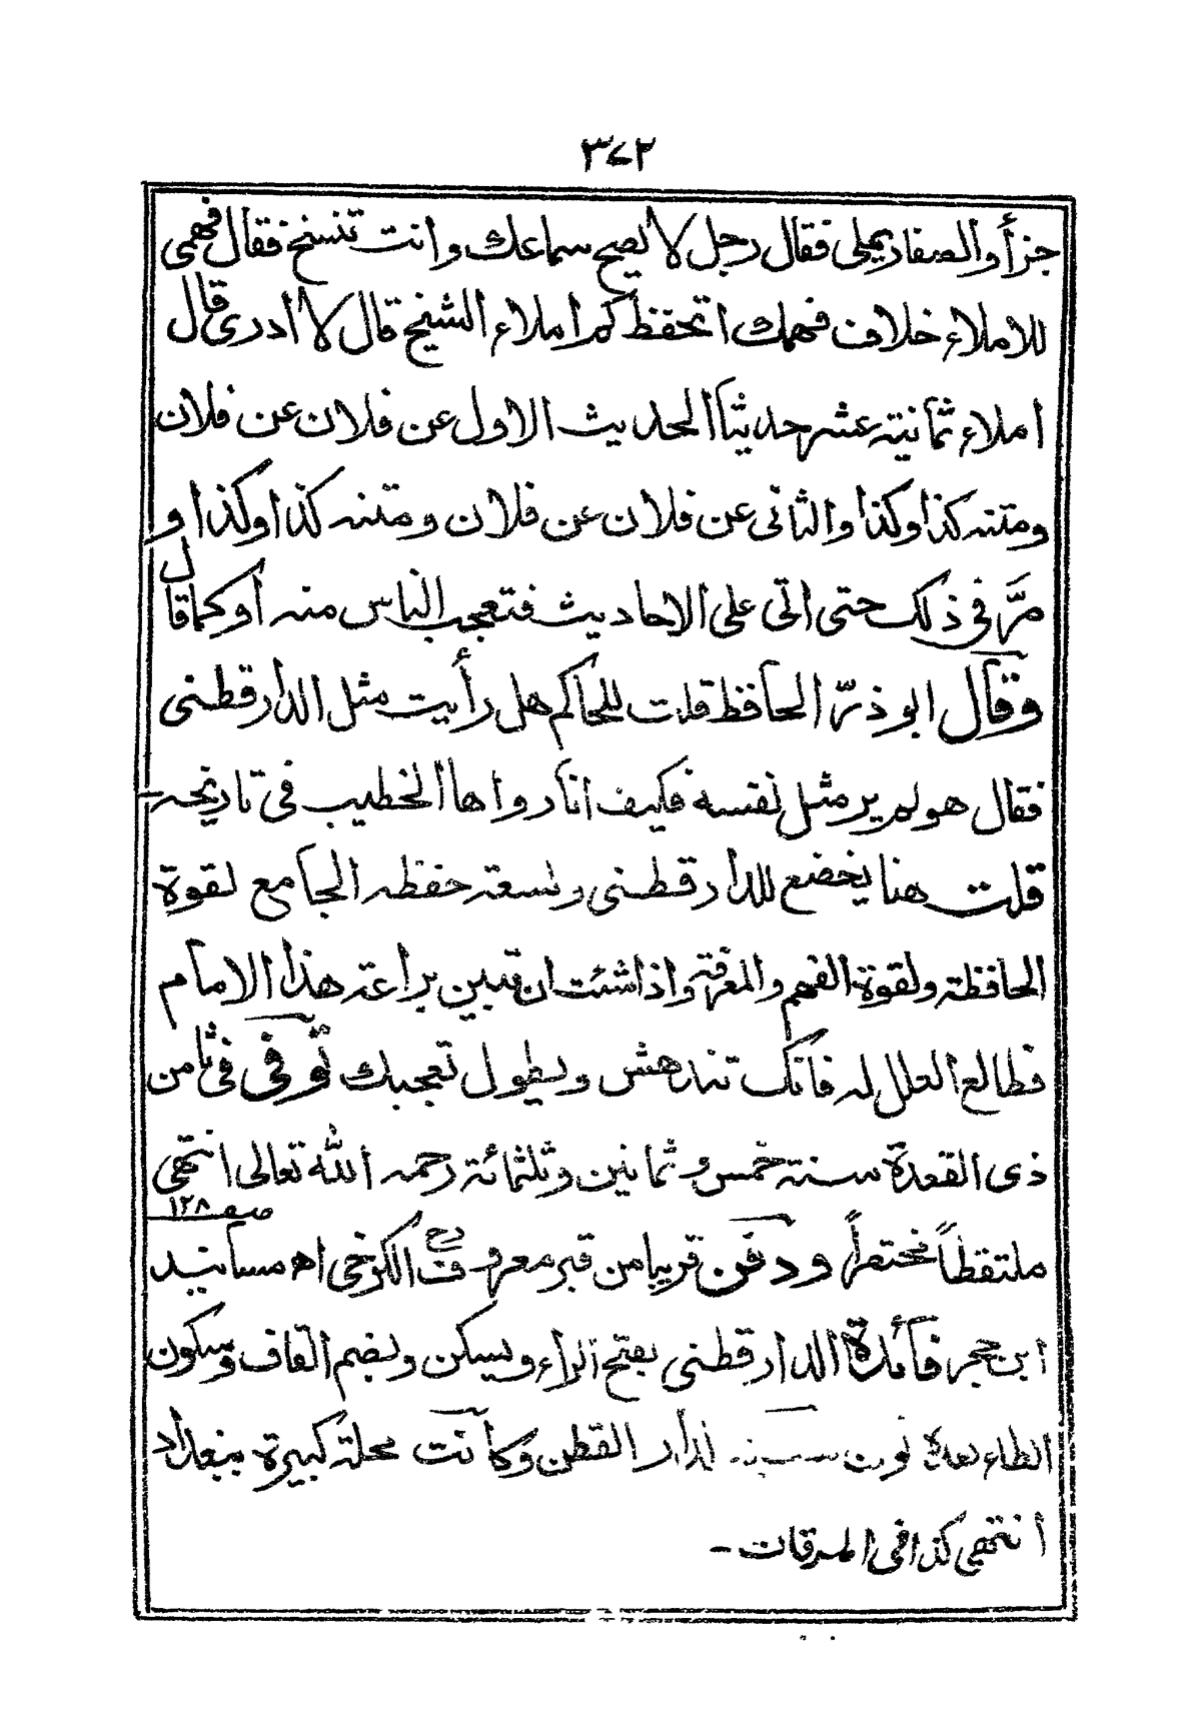 ٣٧٢
جزأ والصفار يملى فقال رجل لا يصح سماعك وانت تنسخ فقال فهمى
للاملاء خلاف فهمك اتحفظ كم املاء الشيخ قال لا ادرى قال
املاء ثمانية عشر حديثا الحديث الاول عن فلان عن فلان
ومتنه كذا وكذا والثانى عن فلان عن فلان ومتنه كذا وكذا و
مرَّ فى ذلك حتى اتى على الاحاديث فتعجب الناس منه أو كما قال
وقال ابو ذرّ الحافظ قلت للحاكم هل رأيت مثل الدارقطنى
فقال هو لم ير مثل نفسه فكيف انا رواها الخطيب فى تاريخه
قلت هنا يخضع للدارقطنى ولسعة حفظه الجامع لقوة
الحافظة ولقوة الفهم والمعرفة واذا شئت ان تبين براعة هذا الامام
فطالع العلل له فانك تندهش ويطول تعجبك توفى فى ثامن
ذى القعدة سنة خمس وثمانين وثلثمائة رحمه الله تعالى انتهى
صفـ ١٢٨
ملتقطاً مختصراً ودفن قريبا من قبر معروف الكرخى اھ مسانيد
ابن حجر فائدة الدارقطنى بفتح الراء ويسكن وبضم القاف وسكون
الطاء بعده نون نسبة لدار القطن وكانت محلة كبيرة ببغداد
انتهى كذا فى المرقات -